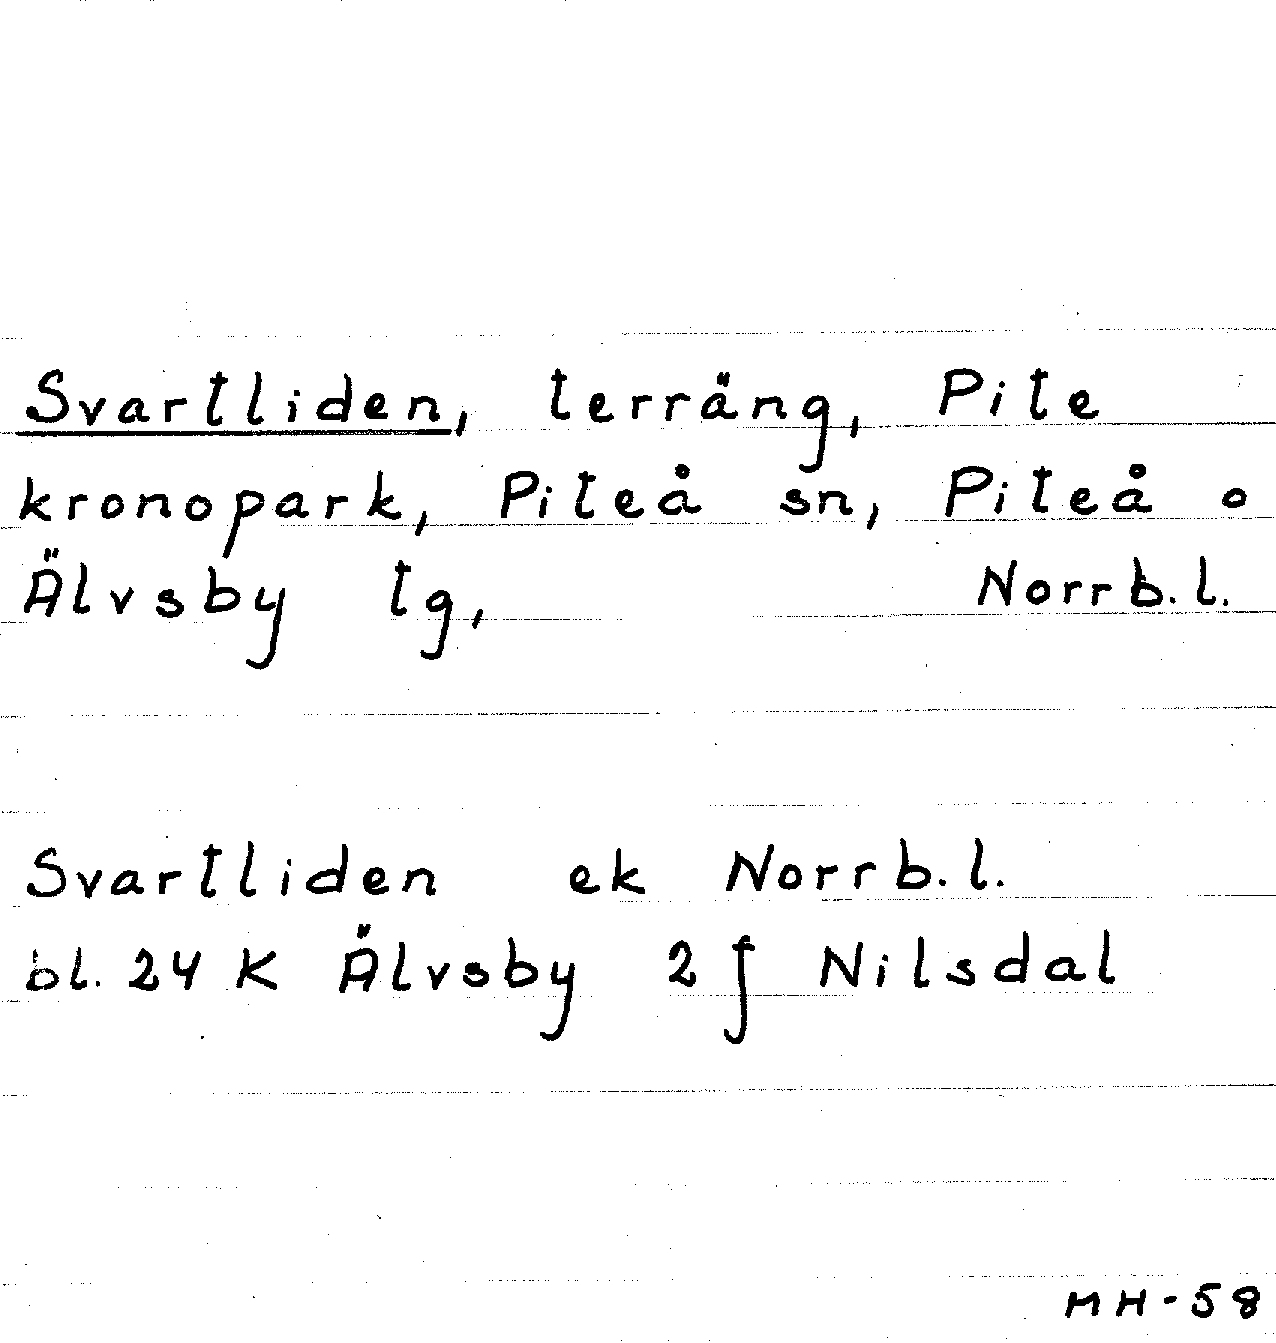 Svartliden, terräng, Pite
kronopark, Piteå sn, Piteå o
Älvsby tg, Norrb.l.
Svartliden ek Norrb.l.
bl. 24 K Älvsby 2 f Nilsdal
MH-58